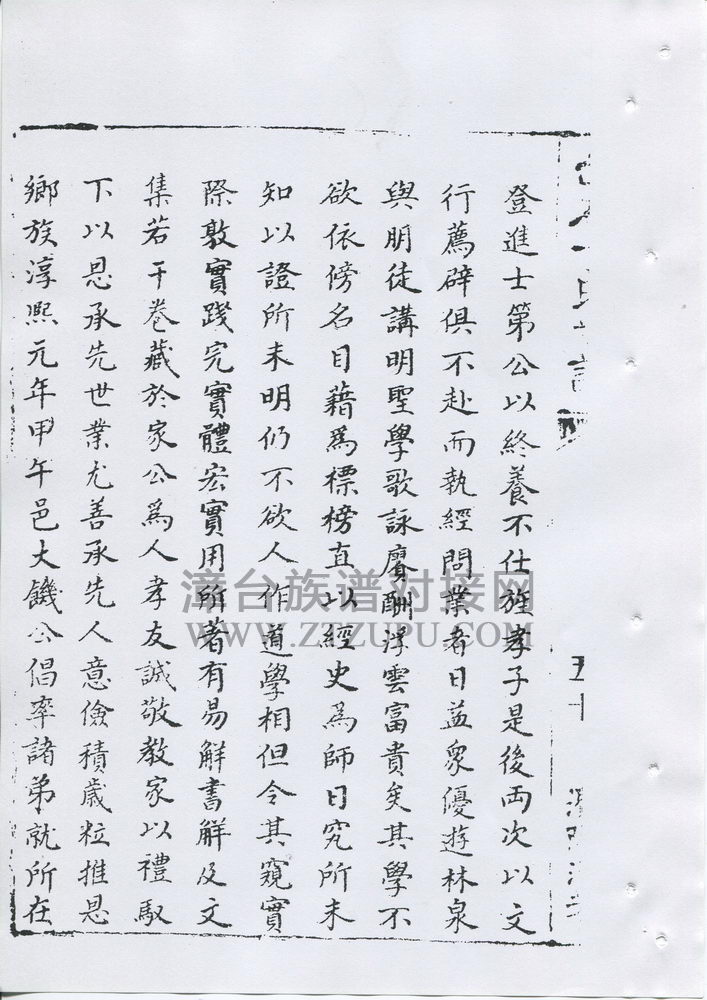 登進士第公以終養不仕旌孝子是後两次以文
行薦辟俱不赴而執經問業者日益衆優遊林泉
與朋徒講明聖學歌詠賡酬浮雲富貴矣其學不
欲依傍名目藉爲標榜直以經史爲師日究所未
知以證所未明仍不欲人作道學相但令其窺實
際敦實踐完實體宏實用所著有易解書解及文
集若干卷藏於家公爲人孝友誠敬教家以禮馭
下以恩承先世業尤善承先人意儉積歲粒推恩
鄉族淳熙元年甲午邑大饑公倡率諸弟就所在
五十
漳台族谱对接网
WWW.ZTZUPU.COM